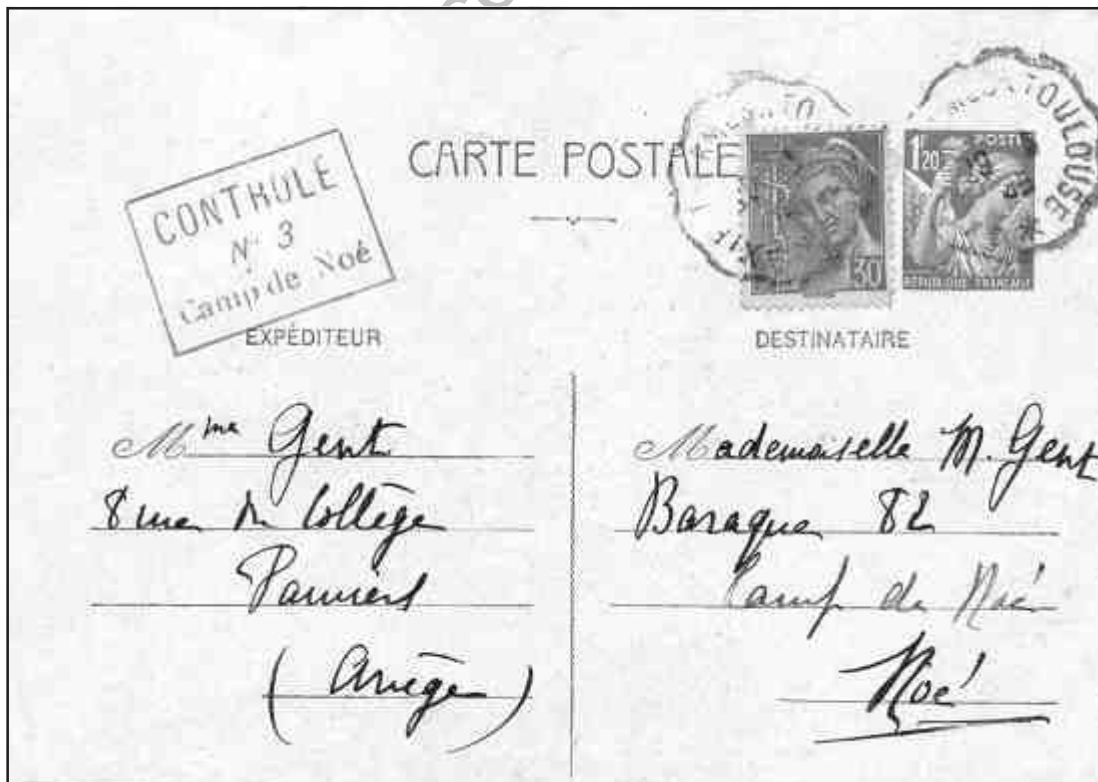 CARTE POSTALE
CONTROLE
N° 3
Camp de Noé
TOULOUSE
POSTE
1F
20
30
RÉPUBLIQUE FRANÇAISE
EXPÉDITEUR
DESTINATAIRE
Mme Gent
8 rue du Collège
Pamiers
(Ariège)
Mademoiselle M. Gent
Baraque 82
Camp de Noé
Noé